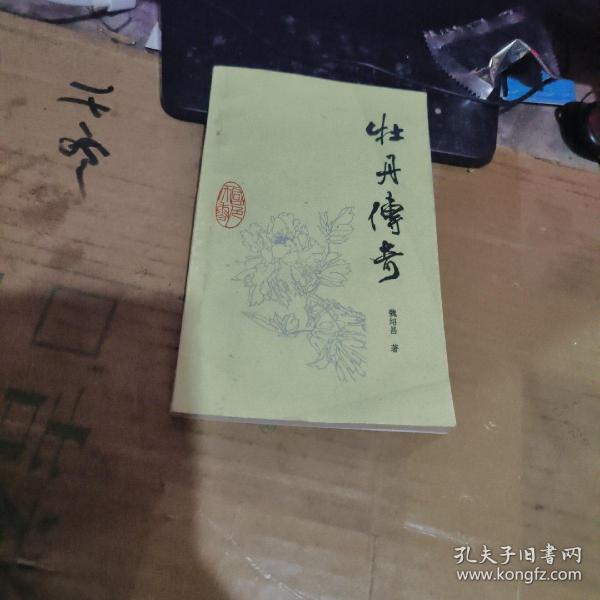 牡丹傳奇
魏绍昌 著
国色天香
孔夫子旧书网
www.kongfz.com